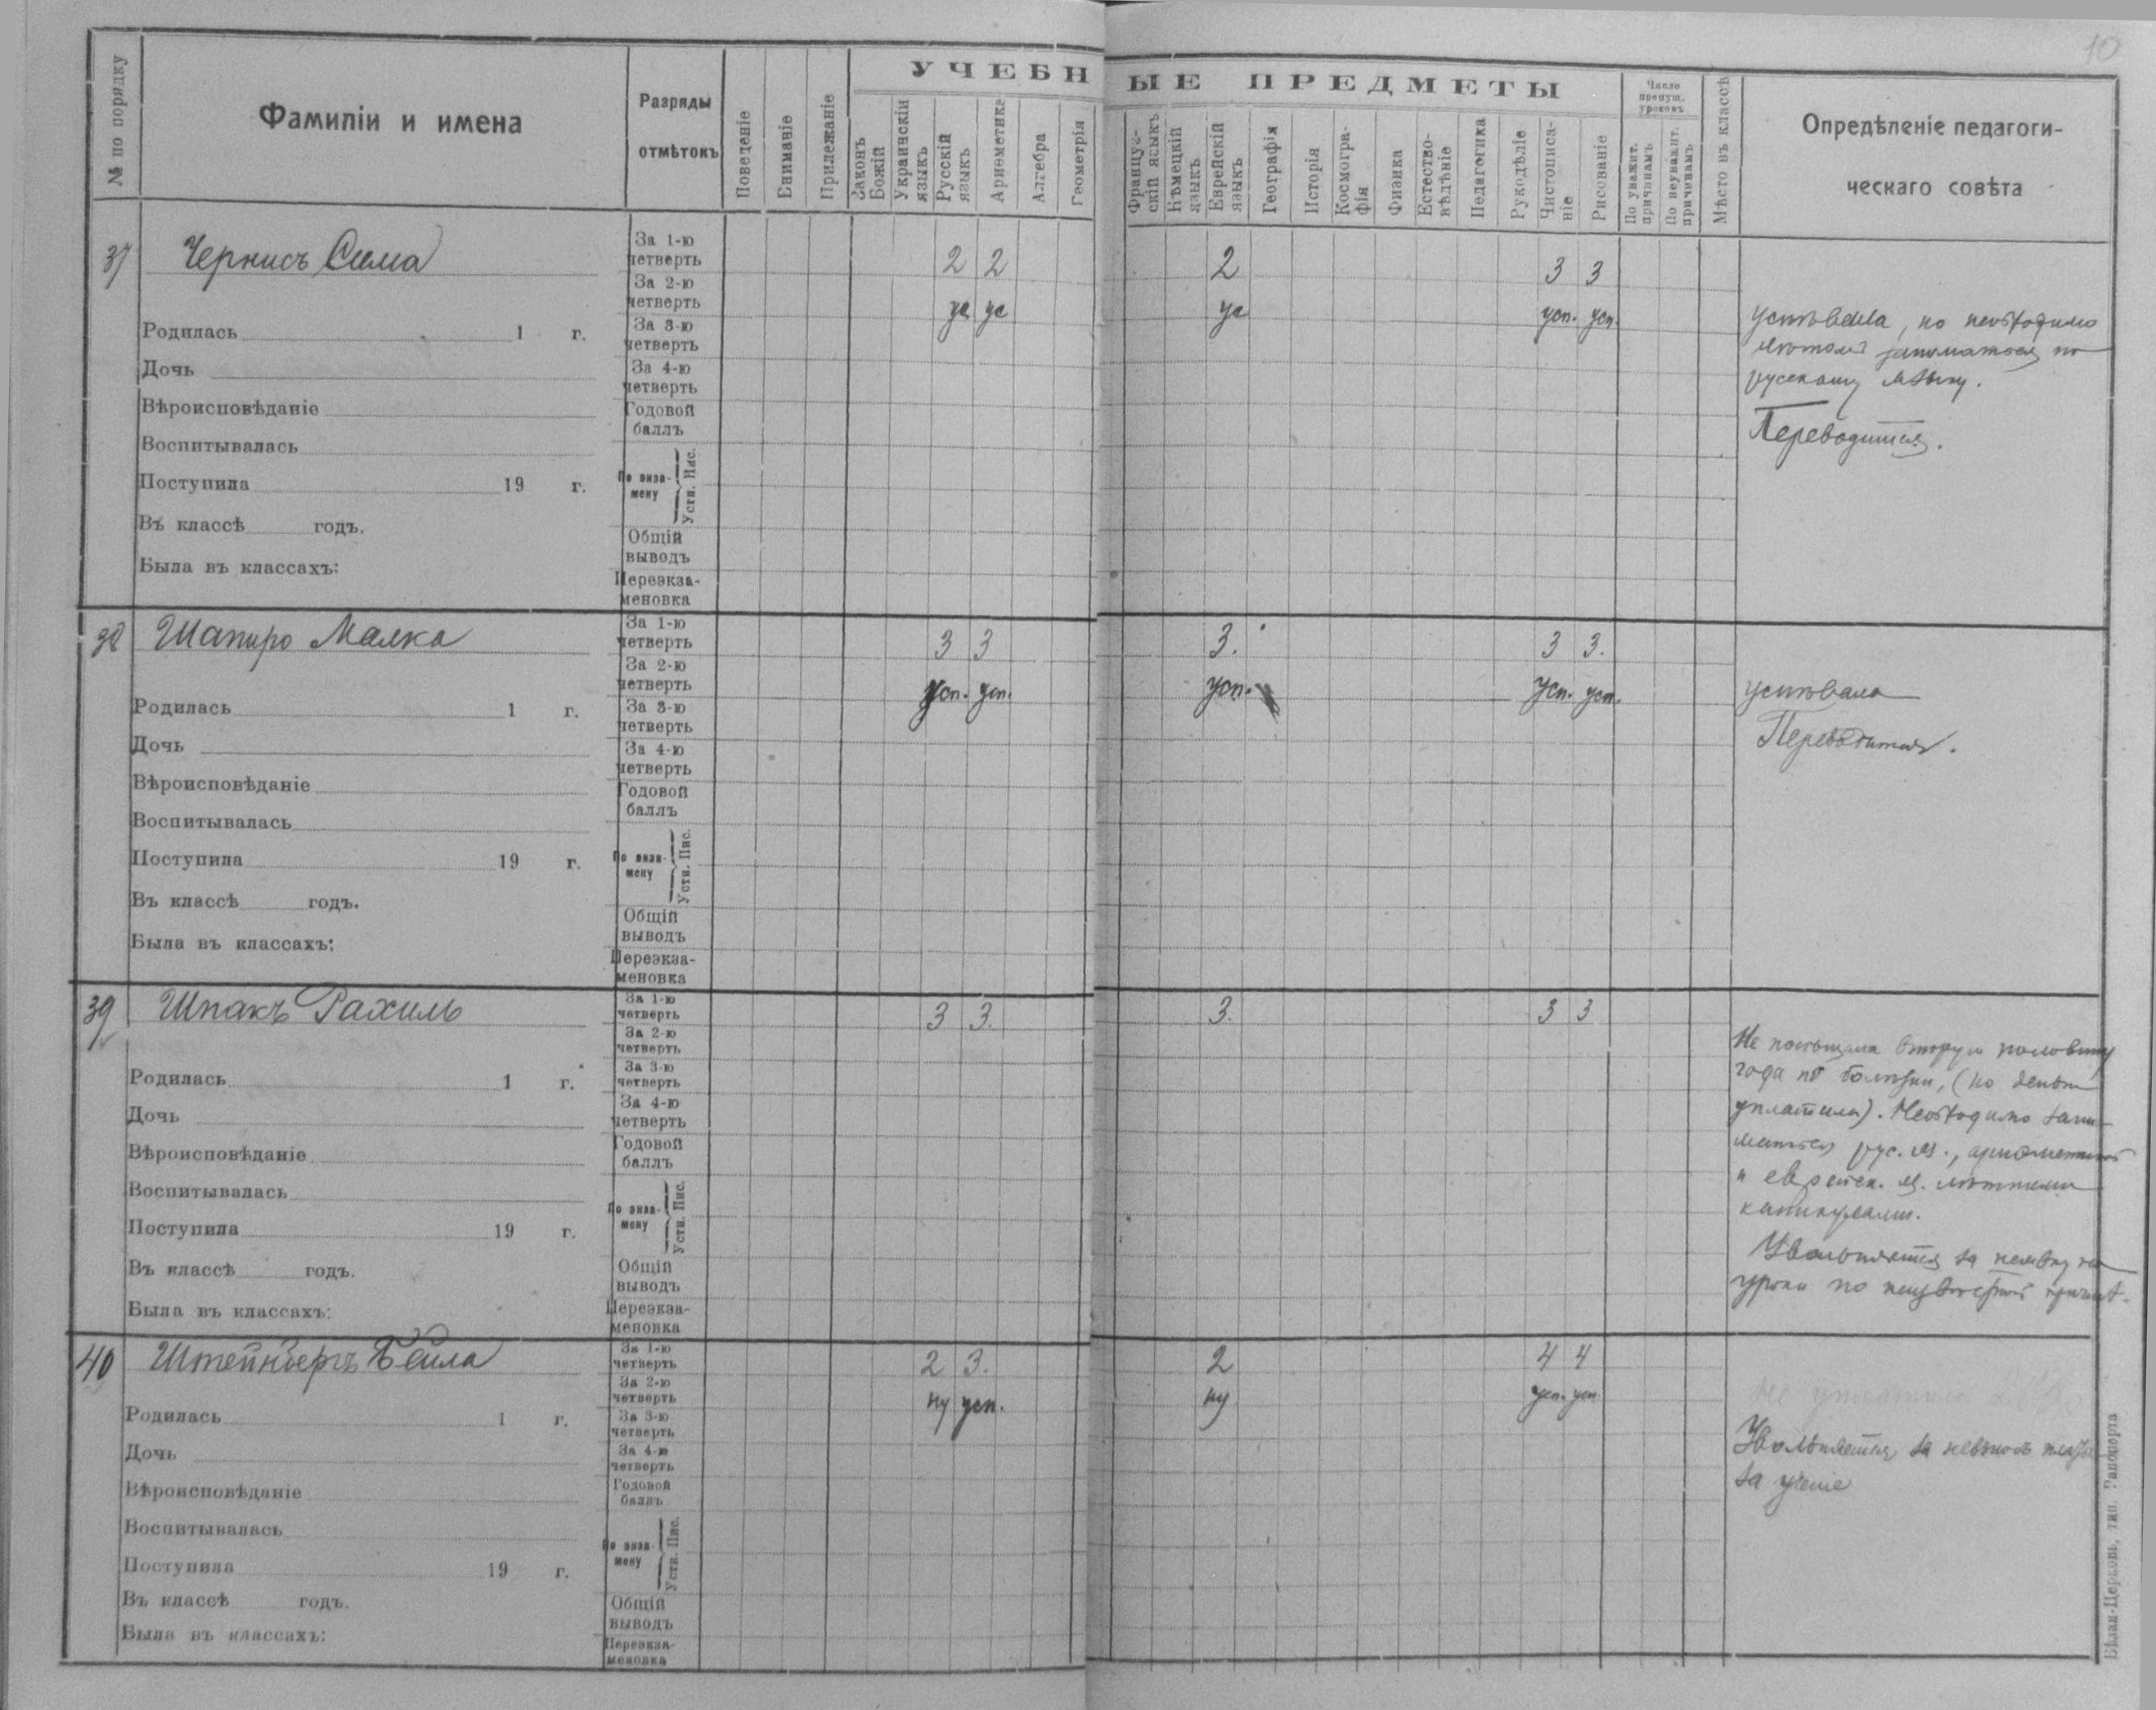 10
УЧЕБНЫЕ ПРЕДМЕТЫ
№ по порядку
Фамиліи и имена
Разряды
отмѣтокъ
Поведеніе
Вниманіе
Прилежаніе
Законъ Божій
Украинскій языкъ
Русскій языкъ
Ариѳметика
Алгебра
Геометрія
Француз-
скій языкъ
Нѣмецкій языкъ
Еврейскій языкъ
Географія
Исторія
Космогра-
фія
Физика
Естество-
вѣдѣніе
Педагогика
Рукодѣліе
Чистописа-
ніе
Рисованіе
Число
пропущ.
уроковъ
По уважит.
причинамъ
По неуважит.
причинамъ
Мѣсто въ классѣ
Опредѣленіе педагоги-
ческаго совѣта
37 Чернисъ Сима
За 1-ю четверть 2 2 2 3 3
За 2-ю четверть ус ус ус усп. усп.
Родилась 1 г.
За 3-ю четверть
Дочь
За 4-ю четверть
Вѣроисповѣданіе
Годовой баллъ
Воспитывалась
Поступила 19 г.
По экза-
мену Устн. Пис.
Въ классѣ годъ.
Общій выводъ
Была въ классахъ:
Переэкза-
меновка
успѣвала, но необходимо
лѣтомъ заниматься по
русскому языку.
Переводится.
38 Шапиро Малка
За 1-ю четверть 3 3 3. 3 3.
За 2-ю четверть усп. усп. усп. усп. усп.
Родилась 1 г.
За 3-ю четверть
Дочь
За 4-ю четверть
Вѣроисповѣданіе
Годовой баллъ
Воспитывалась
Поступила 19 г.
По экза-
мену Устн. Пис.
Въ классѣ годъ.
Общій выводъ
Была въ классахъ:
Переэкза-
меновка
успѣвала
Переводится.
39 Шпакъ Рахиль
За 1-ю четверть 3 3. 3. 3 3
За 2-ю четверть
Родилась 1 г.
За 3-ю четверть
Дочь
За 4-ю четверть
Вѣроисповѣданіе
Годовой баллъ
Воспитывалась
Поступила 19 г.
По экза-
мену Устн. Пис.
Въ классѣ годъ.
Общій выводъ
Была въ классахъ:
Переэкза-
меновка
Не посѣщала вторую половину
года по болѣзни, (но деньги
уплатила). Необходимо зани-
маться рус. яз., ариѳметикой
и еврейск. яз. лѣтними
каникулами.
Увольняется за неявку на
уроки по неизвѣстной причинѣ.
40 Штейнбергъ Бейла
За 1-ю четверть 2 3. 2 4 4
За 2-ю четверть ну усп. ну усп. усп.
Родилась 1 г.
За 3-ю четверть
Дочь
За 4-ю четверть
Вѣроисповѣданіе
Годовой баллъ
Воспитывалась
Поступила 19 г.
По экза-
мену Устн. Пис.
Въ классѣ годъ.
Общій выводъ
Была въ классахъ:
Переэкза-
меновка
не уплатила
Увольняется за невзносъ платы
за ученіе
Бѣлая-Церковь, тип. Рапопорта